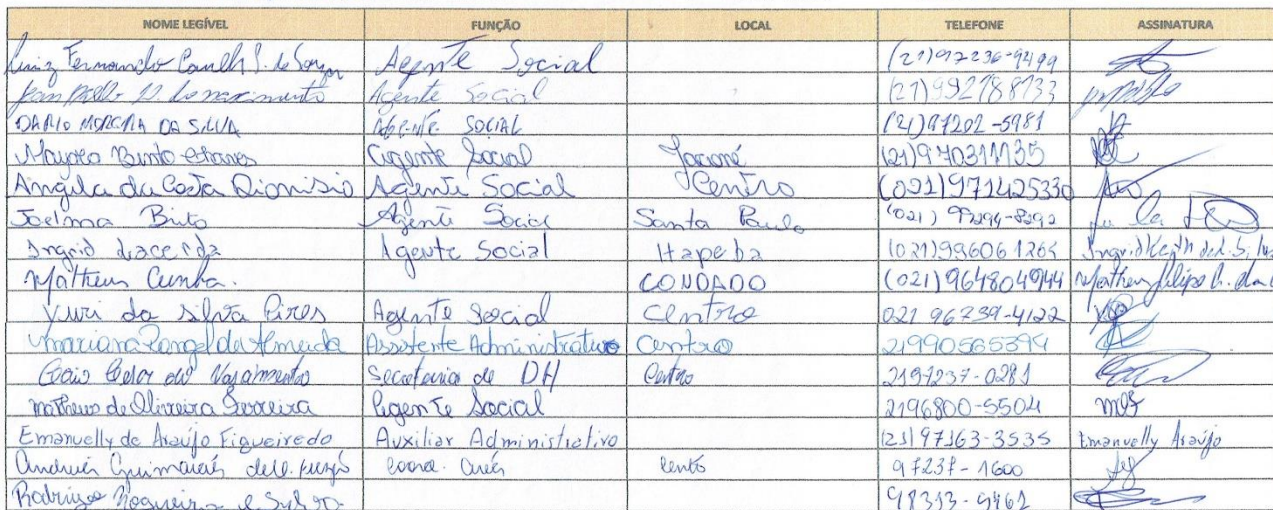 NOME LEGÍVEL FUNÇÃO LOCAL TELEFONE ASSINATURA
Luiz Fernando S. de Souza Agente Social (21)97236-9499
Jean Pablo Agente Social (21)992788733
DARIO MOREIRA DA SILVA AGENTE SOCIAL (21)97202-5981
Bento Agente Social Jaconé (21)970311135
Angela da Costa Dionisio Agente Social Centro (021)971425330
Joelma Brito Agente Social Santa Paula (021)
Ingrid Lacerda Agente Social Itapeba (021)996061265 Ingrid
Matheus Cunha. CONDADO (021)964804944 Matheus Felipe C. da
Yuri da Silva Pires Agente Social Centro 021 96739-4122
Mariana Rangel de Almeida Assistente Administrativo Centro 21990565394
Caio Cesar do Nascimento Secretaria de DH Centro 2197237-0281
Matheus de Oliveira Ferreira Agente Social 2196800-5504 MOF
Emanuelly de Araújo Figueiredo Auxiliar Administrativo (21)97163-3535 Emanuelly Araújo
Guimarães Coord. Centro 97237-1600
Rodrigo Nogueira 98313-9462